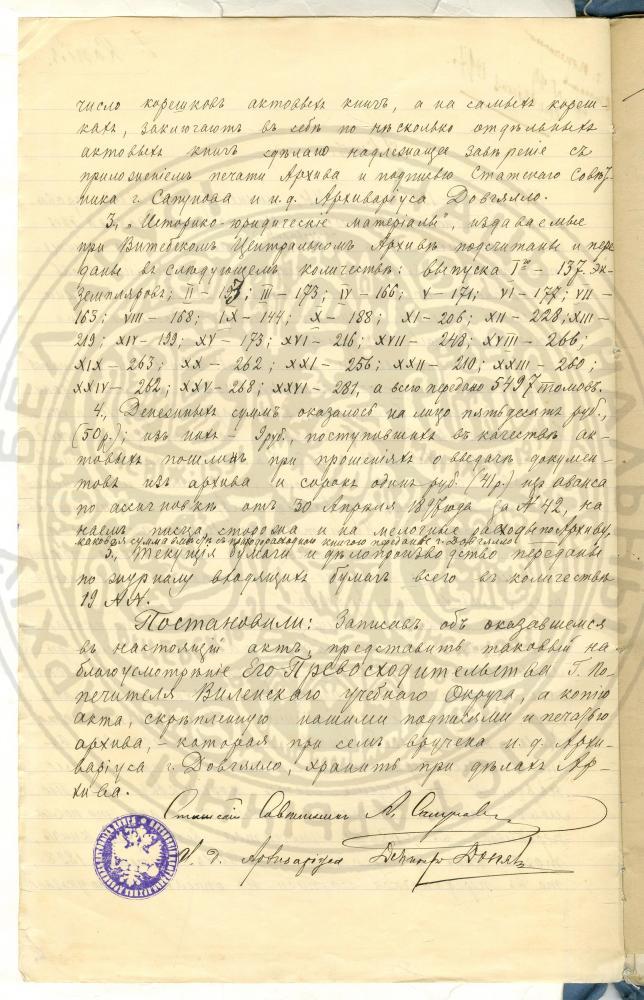 число корешковъ актовыхъ книгъ, а на самыхъ кореш-
кахъ, заключаютъ въ себѣ по нѣсколько отдѣльныхъ
актовыхъ книгъ сдѣлано надлежащее завѣреніе съ
приложеніемъ печати Архива и подписью Статскаго Совѣт-
ника г. Сапунова и и.д. Архиваріуса Довгялло.
3., „Историко-юридическіе матеріалы", издаваемые
при Витебскомъ Центральномъ Архивѣ подсчитаны и пере
даны въ слѣдующемъ количествѣ: выпуска Iго – 137. эк-
земпляровъ; II – 193; III – 173; IV – 166; V – 171; VI – 177; VII –
165; VIII – 168; IX – 144; X – 188; XI – 206; XII – 228; XIII –
219; XIV – 199; XV – 173; XVI – 216; XVII – 248; XVIII – 266;
XIX – 263; XX – 262; XXI – 256; XXII – 210; XXIII – 260;
XXIV – 262; XXV – 268; XXVI – 281, а всего передано 5497 томовъ.
4., Денежныхъ суммъ оказалось на лицо пятьдесятъ руб.,
(50 р.); изъ нихъ – 9 руб., поступившихъ въ качествѣ ак-
товыхъ пошлинъ при прошеніяхъ о выдачѣ докумен-
товъ изъ архива и сорокъ одинъ руб. (41 р.) изъ аванса
по ассигновкѣ отъ 30 Апрѣля 1897 года за № 42, на
наемъ писца, сторожа и на мелочные расходы по Архиву,
каковая сумма вмѣстѣ съ приходорасходною книгою передана г. Довгялло.
5., Текущія бумаги и дѣлопроизводство переданы
по журналу входящихъ бумагъ всего въ количествѣ
19 №№.
Постановили: Записавъ объ оказавшемся
въ настоящій актъ, представить таковый на
благоусмотрѣніе Его Превосходительства Г. По-
печителя Виленскаго учебнаго Округа, а копію
акта, скрѣпленную нашими подписями и печатью
архива, – которая при семъ вручена и. д. Архи-
варіуса г. Довгялло, хранить при дѣлахъ Ар-
хива.
Статскій Совѣтникъ А. Сапуновъ
И. д. Архиваріуса Дмитрій Довгялло